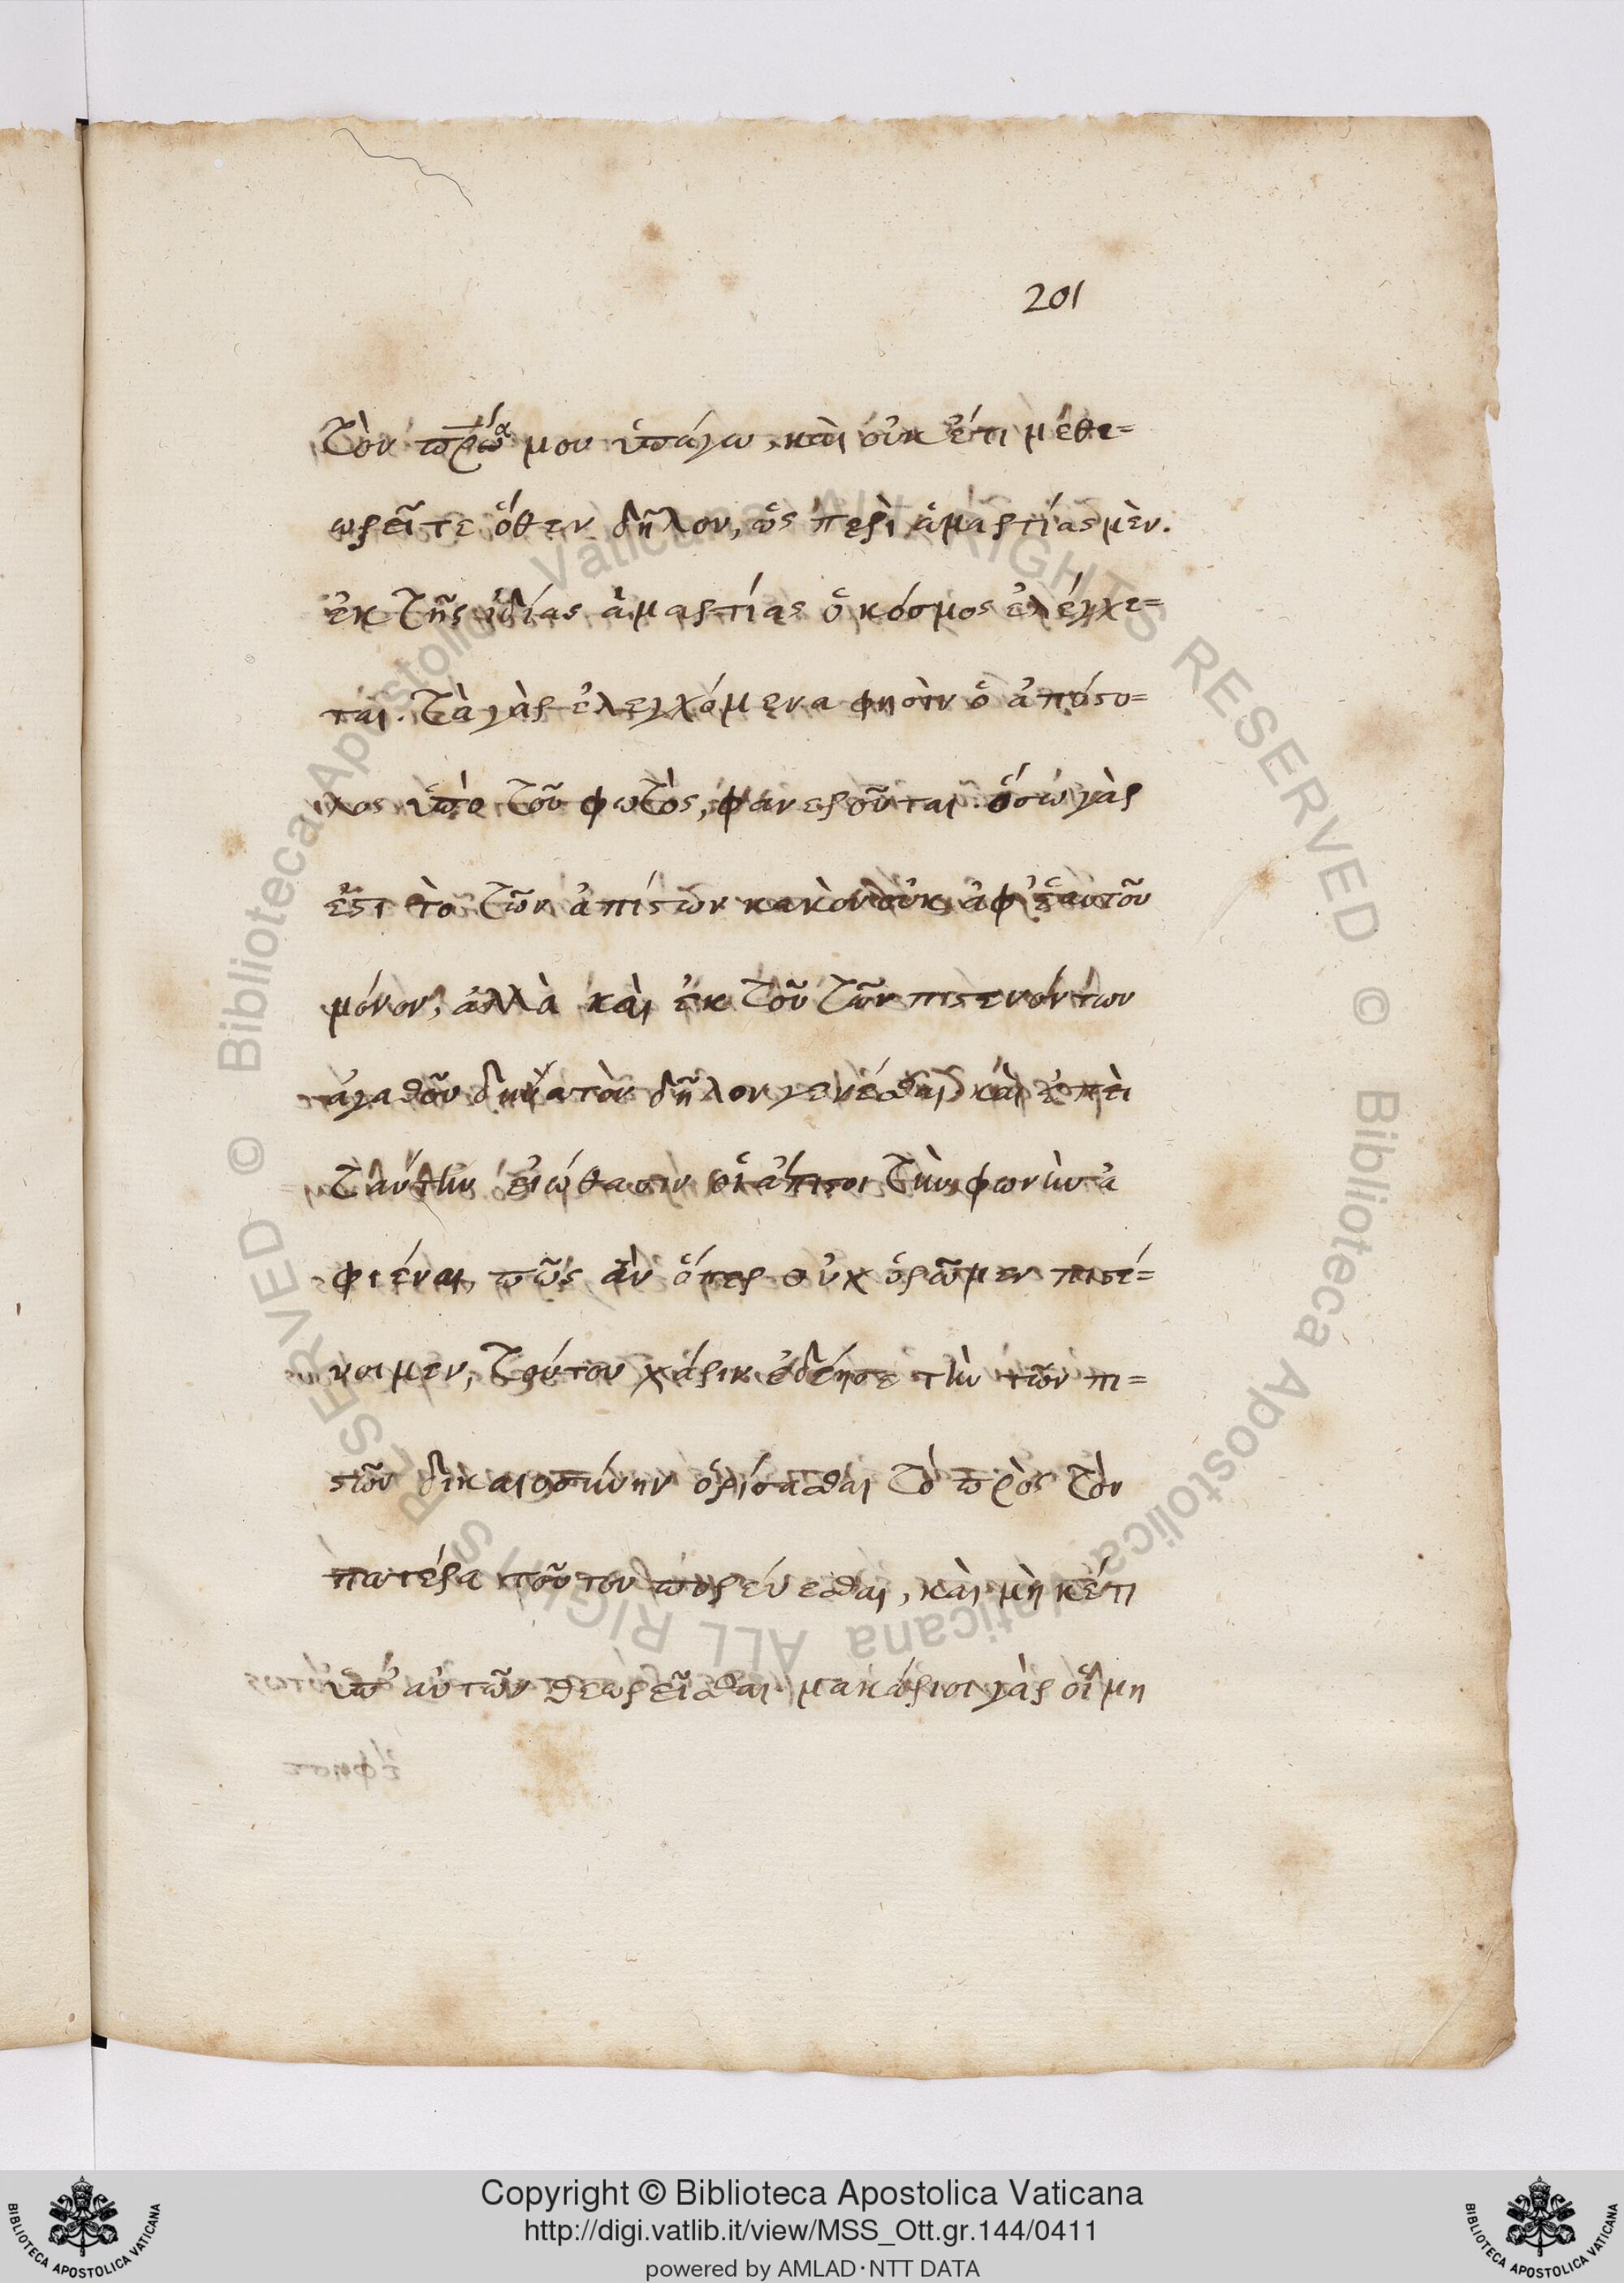 201
τὸν πρ̅α μου ὑπάγω, καὶ οὐκ έτι μέ θε=
ωρεῖτε ὅθεν δῆλον, ὡς περὶ ἁμαρτίας μὲν.
ἐκ τῆς ἰδίας ἁμαρτίας ὁ κόσμος ἐλέγχε=
ται. τὰ γὰρ ἐλεγχόμενα φησὶν ὁ ἀπόστο=
λος ὑπὸ τοῦ φωτὸς, φανεροῦται. ὅσω γὰρ
ἐστι τὸ τῶν ἀπίστων κακὸν οὐκ ἀφ' ἑαυτοῦ
μόνον, ἀλλὰ καὶ ἐκ τοῦ τῶν πιστευόντων
ἀγαθοῦ δυνατὸν δῆλον γενέσθαι καὶ ἐπεὶ
ταύτην εἰώθασιν οἱ ἄπιστοι τὴν φωνὴν ἀ
φιέναι, πῶς ἂν ὅπερ οὐχ ὁρῶμεν πιστέ=
υοιμεν, τούτου χάριν ἐδέησε τὴν τῶν πι=
στῶν δικαιοσύνην ὁρίσασθαι τὸ πρὸς τὸν
πατέρα τοῦτον πορεύεσθαι, καὶ μὴ κέτι
ὑπ' αὐτῶν θεωρεῖσθαι μακάριοι γὰρ οἱ μὴ
Copyright © Biblioteca Apostolica Vaticana
http://digi.vatlib.it/view/MSS_Ott.gr.144/0411
powered by AMLAD·NTT DATA
BIBLIOTECA APOSTOLICA VATICANA
BIBLIOTECA APOSTOLICA VATICANA
© Biblioteca Apostolica Vaticana ALL RIGHTS RESERVED
© Biblioteca Apostolica Vaticana ALL RIGHTS RESERVED